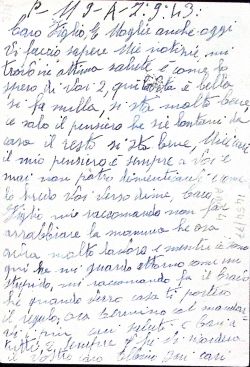 P-M 9-A-2-9-43-
Caro Figlio, e Moglie anche oggi
vi faccio sapere mie notizie, mi
trovo in ottima salute è come
spero, di voi 2, qui la vita è bella
si fa nulla, si sta molto bene
e solo il pensiero che siè lontani da
casa il resto si sta bene,
il mio pensiero è sempre a voi e
mai non potrò dimenticarvi come
credo voi verso di me, Caro
Figlio mi raccomando non far
arrabbiare la mamma che ora
avra molto lavoro e mentre io sono
qui che mi guardo attorno come uno
stupido, mi raccomando fa il bravo
che quando verrò a casa ti porterò
il regalo, ora termino col mandar
vi i più saluti e baci a
tutti e 2 sempre
il vostro caro